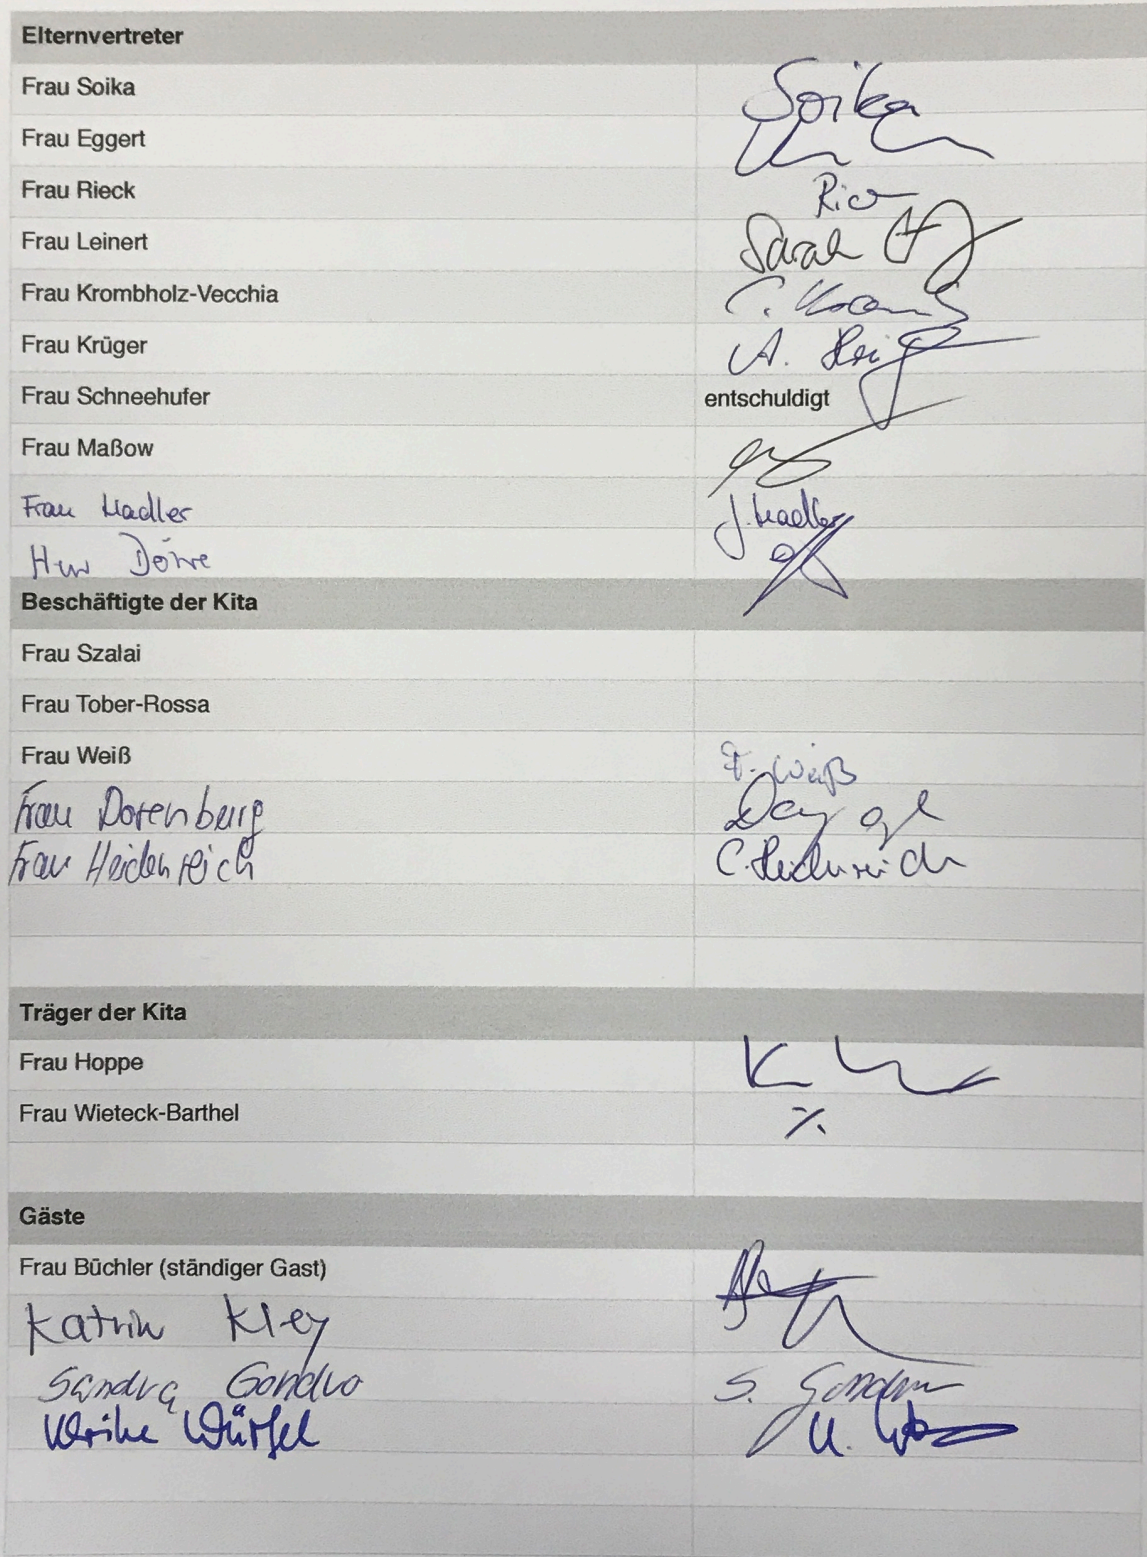 Elternvertreter
Frau Soika Soika
Frau Eggert
Frau Rieck
Frau Leinert Sarah
Frau Krombholz-Vecchia C.
Frau Krüger A.
Frau Schneehufer entschuldigt
Frau Maßow
Frau Madler J. Madler
Herr Döhre
Beschäftigte der Kita
Frau Szalai
Frau Tober-Rossa
Frau Weiß Weiß
Frau Dorenburg
Frau Heidenreich C. Heidenreich
Träger der Kita
Frau Hoppe
Frau Wieteck-Barthel ٪
Gäste
Frau Büchler (ständiger Gast)
Katrin Kley
Sandra Gondro S. Gondro
Ulrike Würfel U.